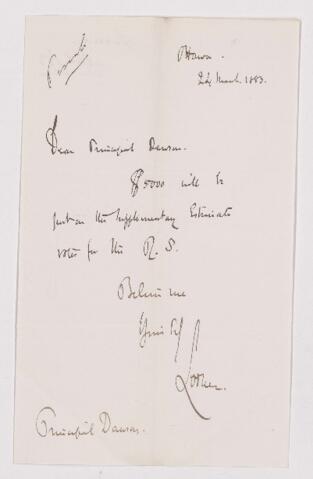 Private
Ottawa.
24 March. 1883.
Dear Principal Dawson.
$5000 will be
put on the Supplementary Estimate
votes for the R. S.
Believe me
Yours
Lorne.
Principal Dawson.